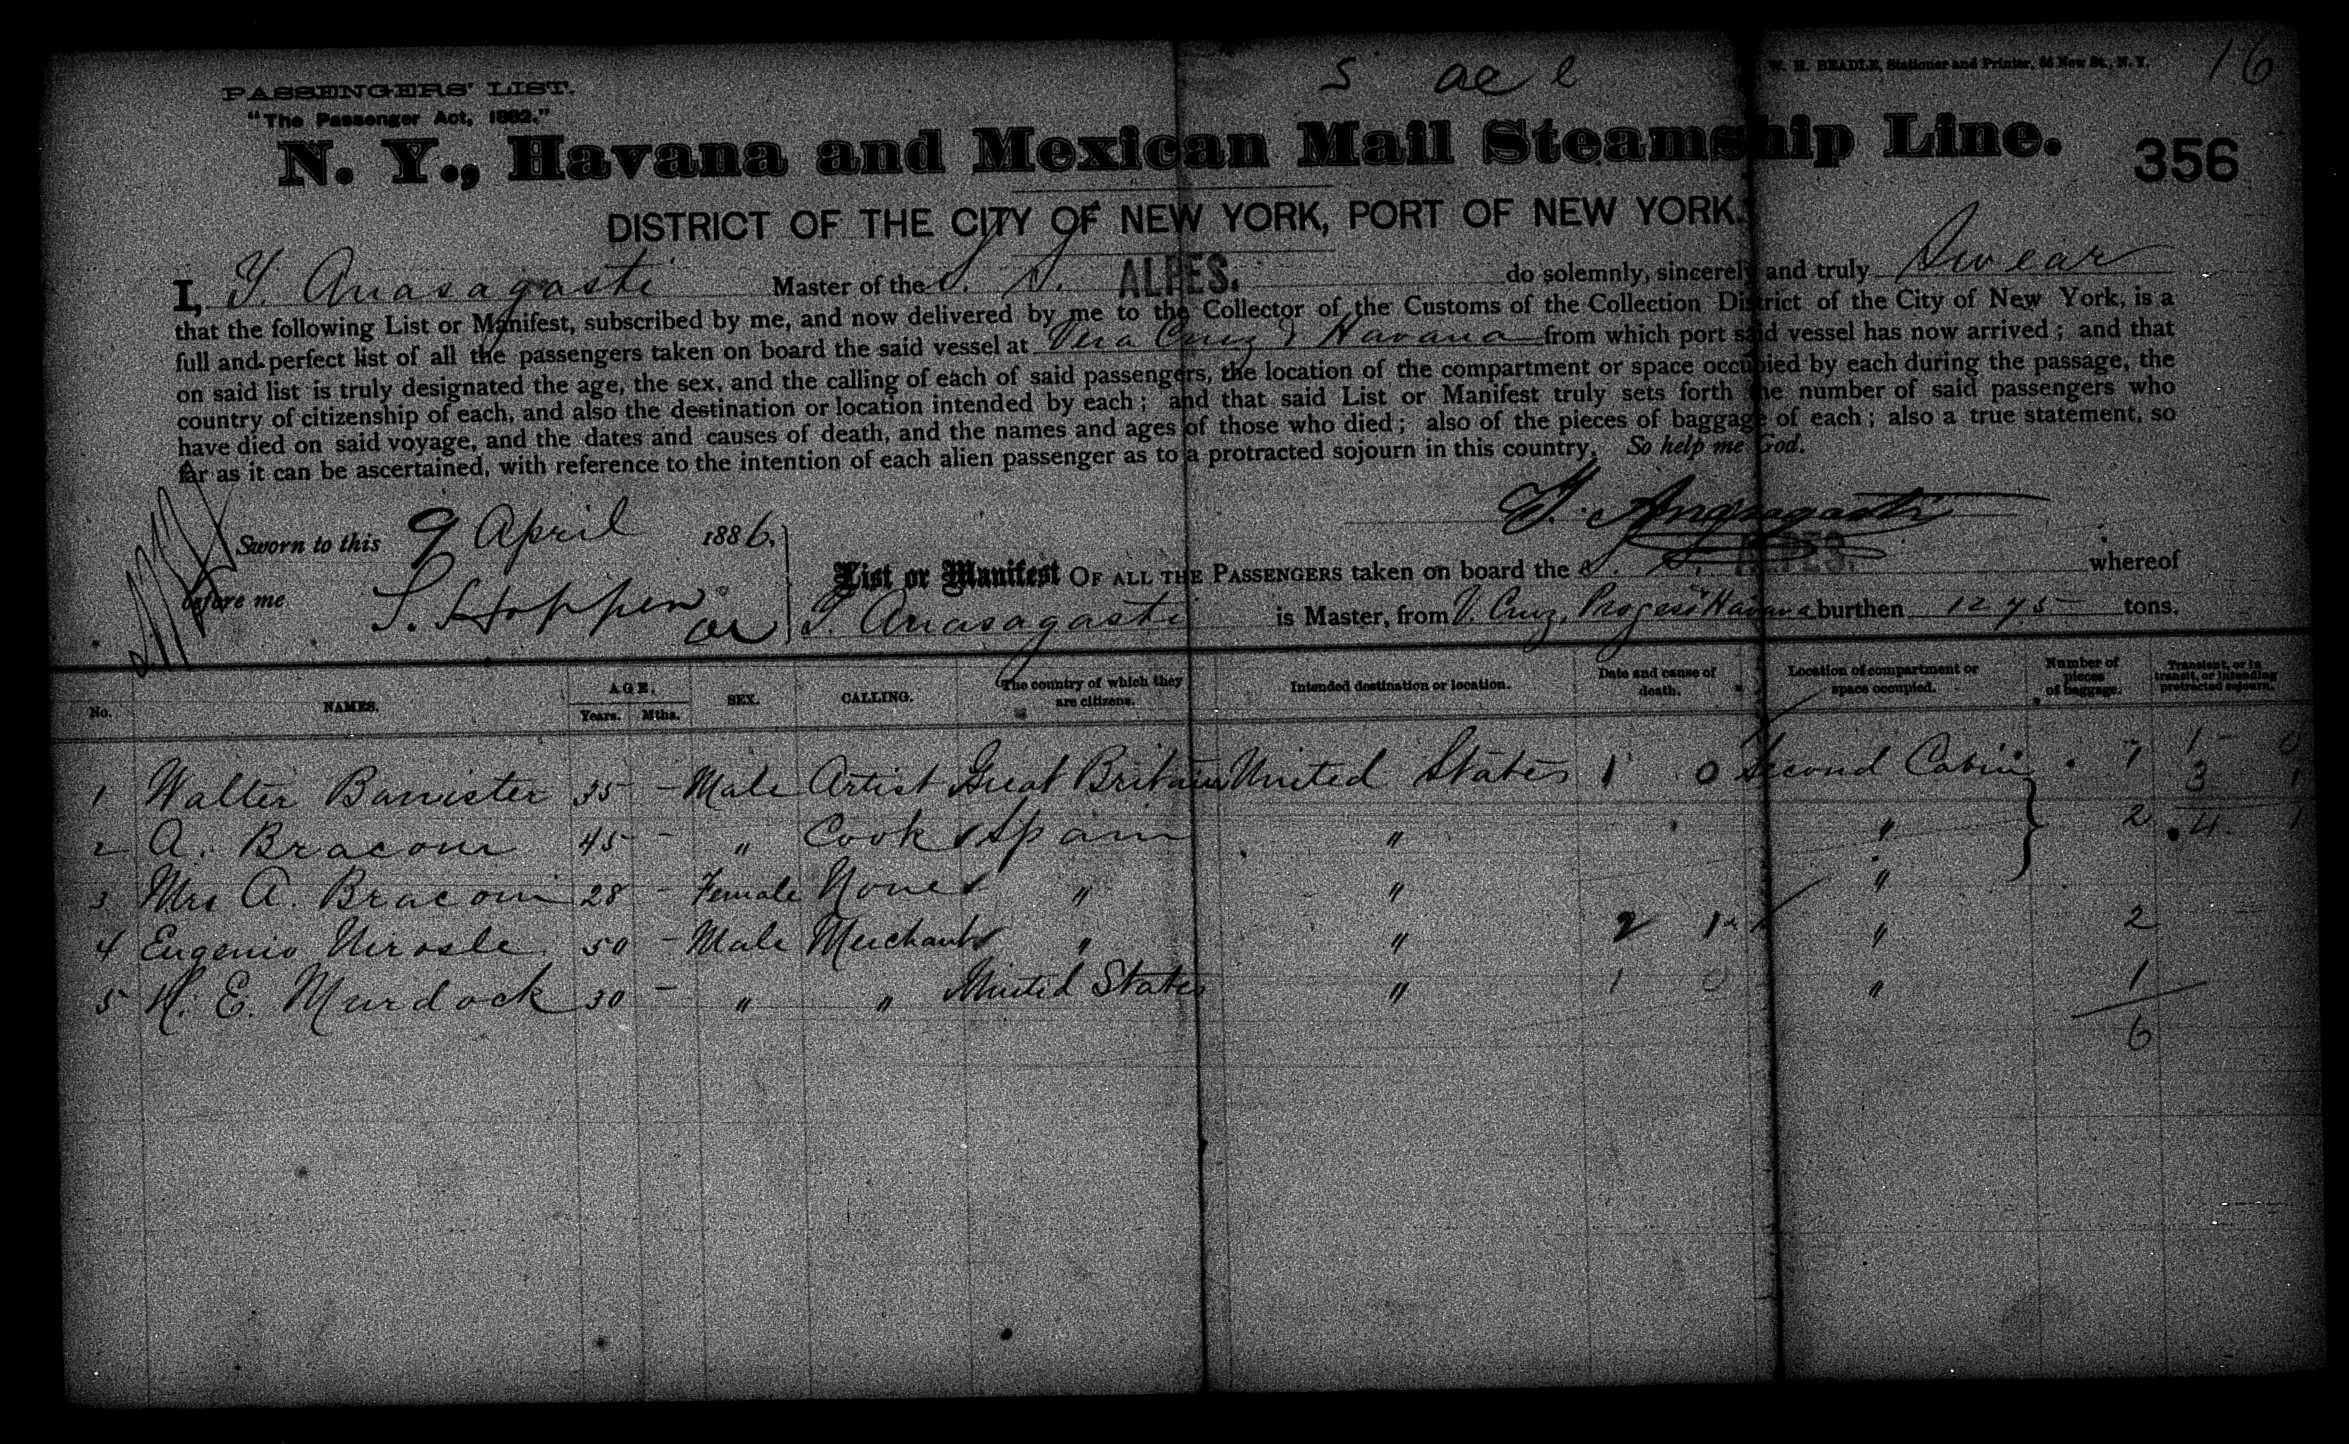 16
S ae l
W. H. BEADLE, Stationer and Printer, New St., N. Y.
PASSENGERS' LIST.
"The Passenger Act, 1882."
N. Y., Havana and Mexican Mail Steamship Line.
356
DISTRICT OF THE CITY OF NEW YORK, PORT OF NEW YORK.
I, T. Anasagasti Master of the S. S. ALPES. do solemnly, sincerely and truly Swear
that the following List or Manifest, subscribed by me, and now delivered by me to the Collector of the Customs of the Collection District of the City of New York, is a
full and perfect list of all the passengers taken on board the said vessel at Vera Cruz & Havana from which port said vessel has now arrived; and that
on said list is truly designated the age, the sex, and the calling of each of said passengers, the location of the compartment or space occupied by each during the passage, the
country of citizenship of each, and also the destination or location intended by each; and that said List or Manifest truly sets forth the number of said passengers who
have died on said voyage, and the dates and causes of death, and the names and ages of those who died; also of the pieces of baggage of each; also a true statement, so
far as it can be ascertained, with reference to the intention of each alien passenger as to a protracted sojourn in this country. So help me God.
T. Anasagasti
Sworn to this 9 April 1886.
before me S. Hoppen
List or Manifest OF ALL THE PASSENGERS taken on board the S. S. ALPES. whereof
T. Anasagasti is Master, from V. Cruz, Progreso Havana burthen 1275 tons.
No. NAMES. AGE. Years. Mths. SEX. CALLING. The country of which they are citizens. Intended destination or location. Date and cause of death. Location of compartment or space occupied. Number of pieces of baggage. Transient, or in transit, or intending protracted sojourn.
1 Walter Bannister 35 - Male Artist Great Britain United States 1 0 Second Cabin 1 1 - 0
3 1
2 A. Braconi 45 - " Cook Spain " " 2 4 1
3 Mrs A. Braconi 28 - Female None " " "
4 Eugenio 50 - Male Merchant " " 2 1 " 2
5 H. E. Murdock 30 - " " United States " 1 0 " 1
6